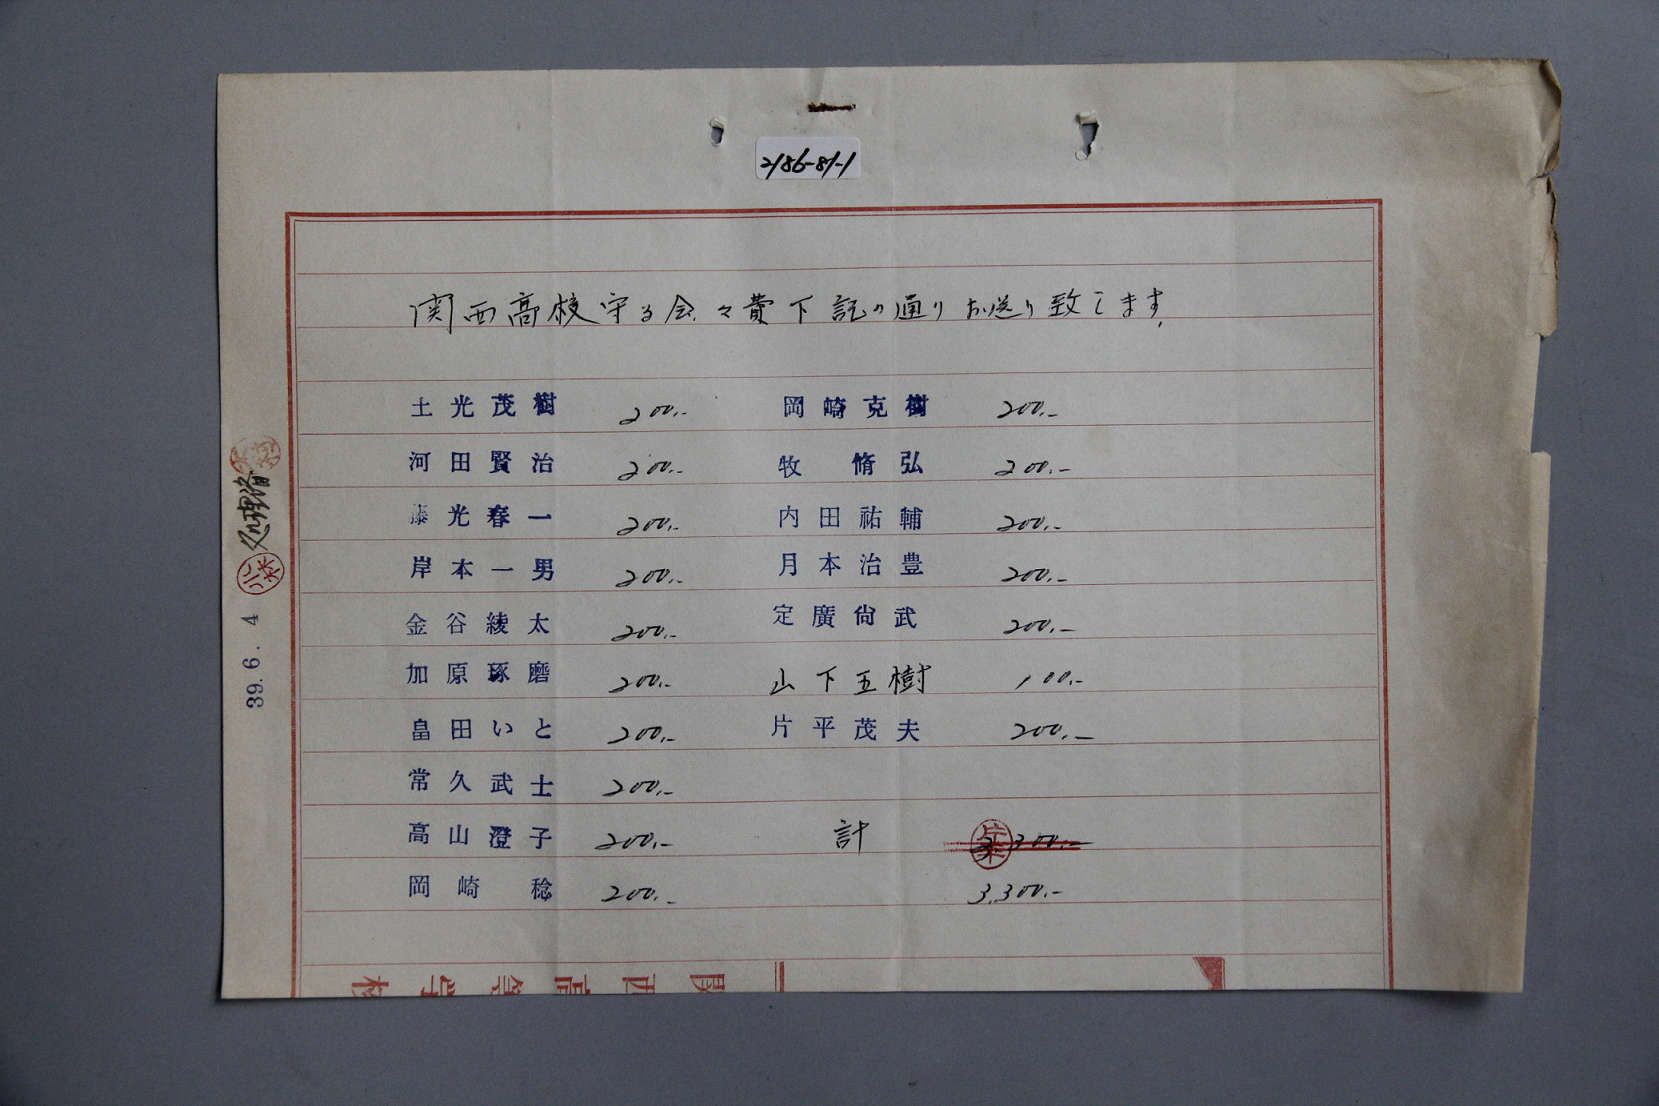 2186-81-1
関西高校守る会々費下記の通りお送り致します
土光茂樹 200.- 岡崎克樹 200.-
河田賢治 200.- 牧 脩弘 200.-
藤光春一 200.- 内田祐輔 200.-
岸本一男 200.- 月本治豊 200.-
金谷綾太 200.- 定廣尙武 200.-
加原琢磨 200.- 山下五樹 100.-
畠田いと 200.- 片平茂夫 200.-
常久武士 200.-
高山澄子 200.- 計
岡崎 稔 200.- 3,300.-
処理済
39.6.4
関西高等学校